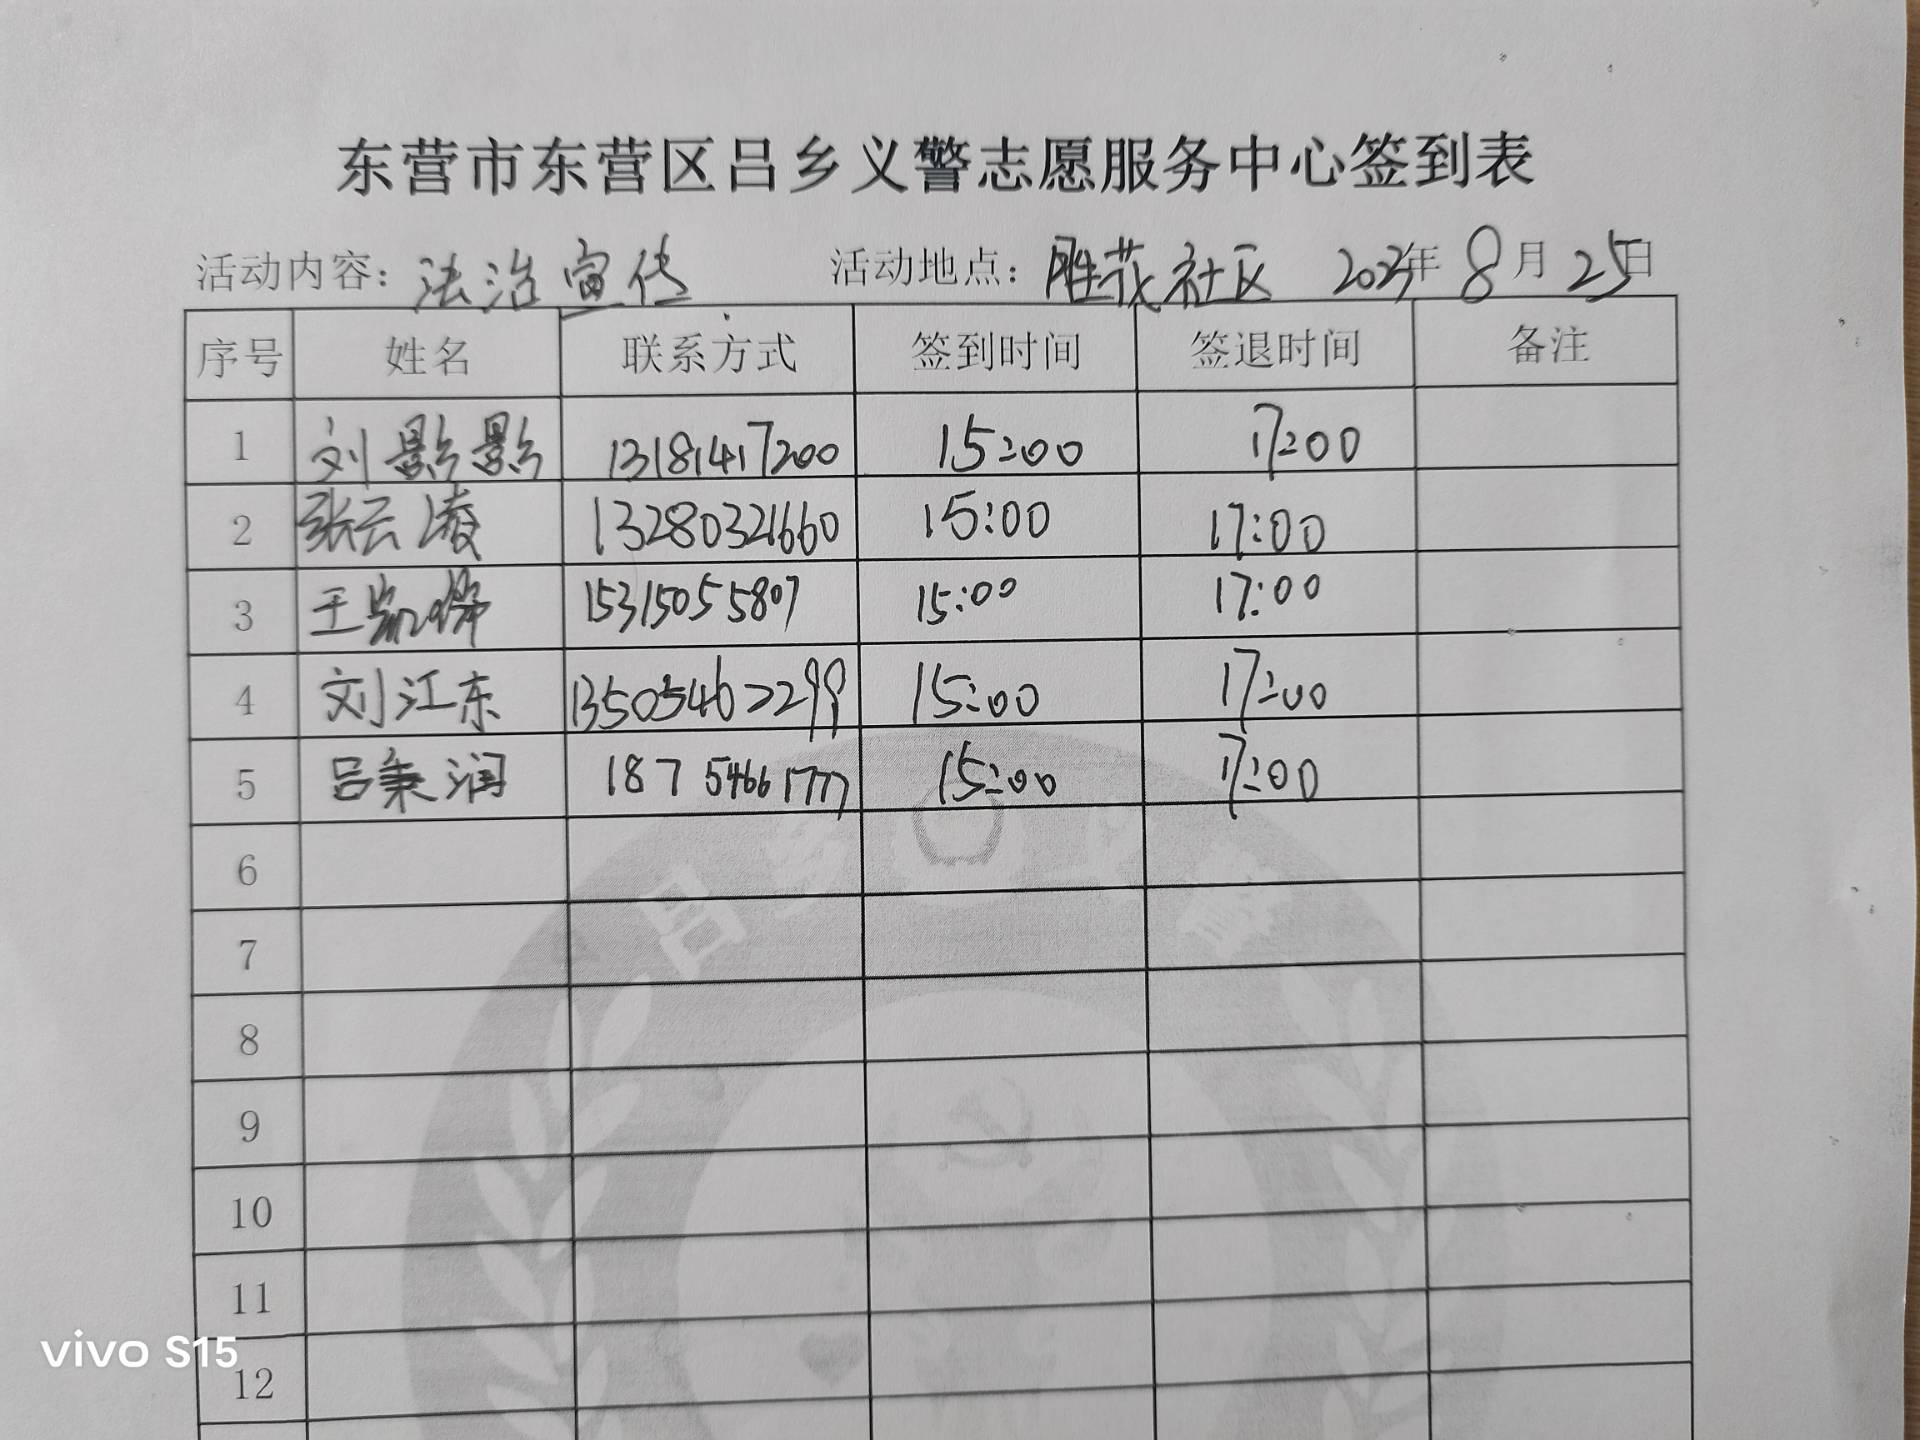 东营市东营区吕乡义警志愿服务中心签到表
活动内容：法治宣传 活动地点：胜茂社区 2023年8月25日
序号 姓名 联系方式 签到时间 签退时间 备注
1 刘影影 13181417200 15:00 17:00
2 张云凌 13280321660 15:00 17:00
3 王凯 15315055807 15:00 17:00
4 刘江东 13505462299 15:00 17:00
5 吕秉润 18754661777 15:00 17:00
6
7
8
9
10
11
12
vivo S15